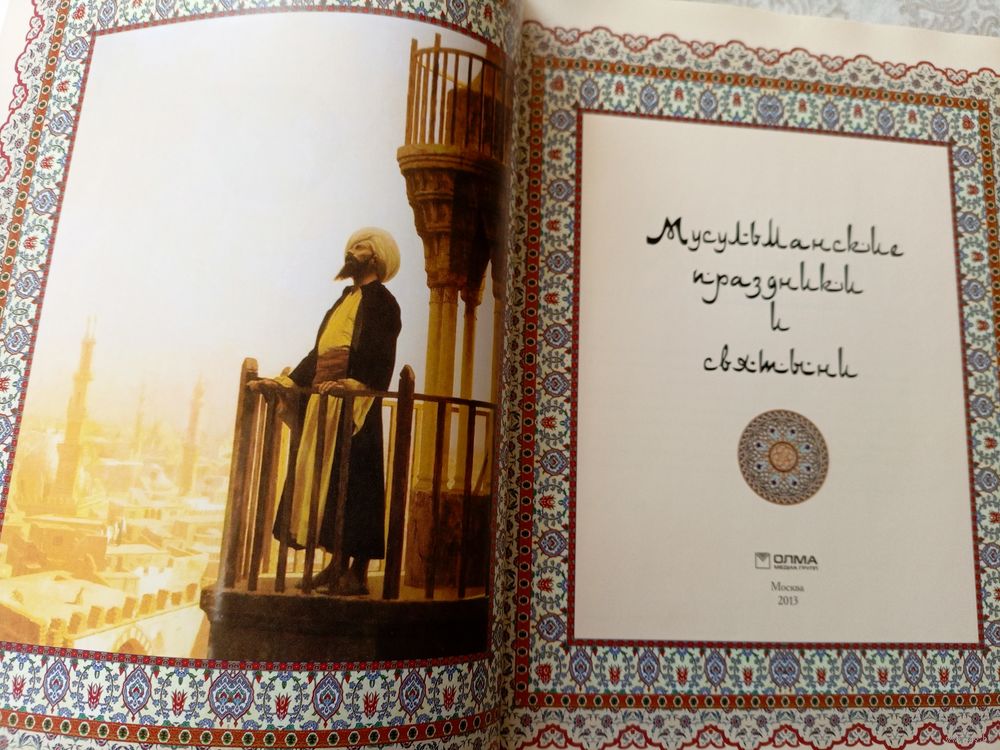 Мусульманские
праздники
и
святыни
ОЛМА
МЕДИА ГРУПП
Москва
2013